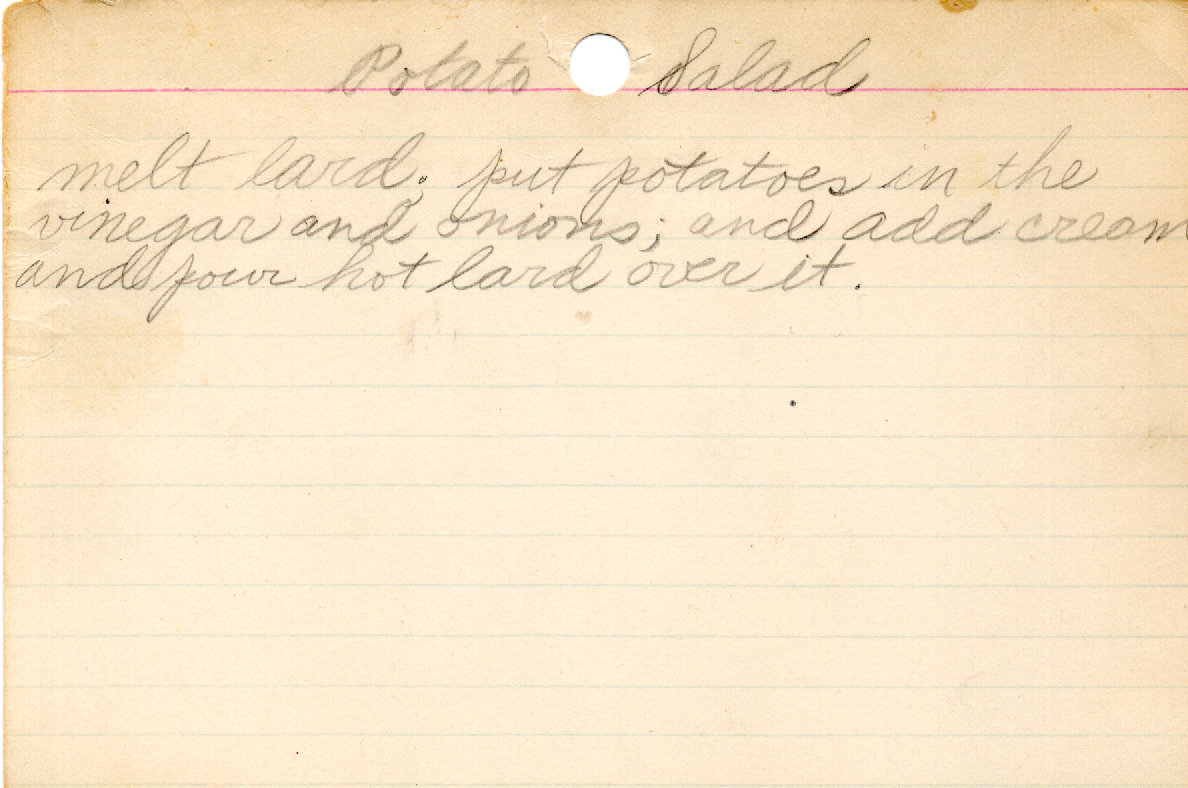 Potato Salad
melt lard; put potatoes in the
vinegar and onions; and add cream
and pour hot lard over it.